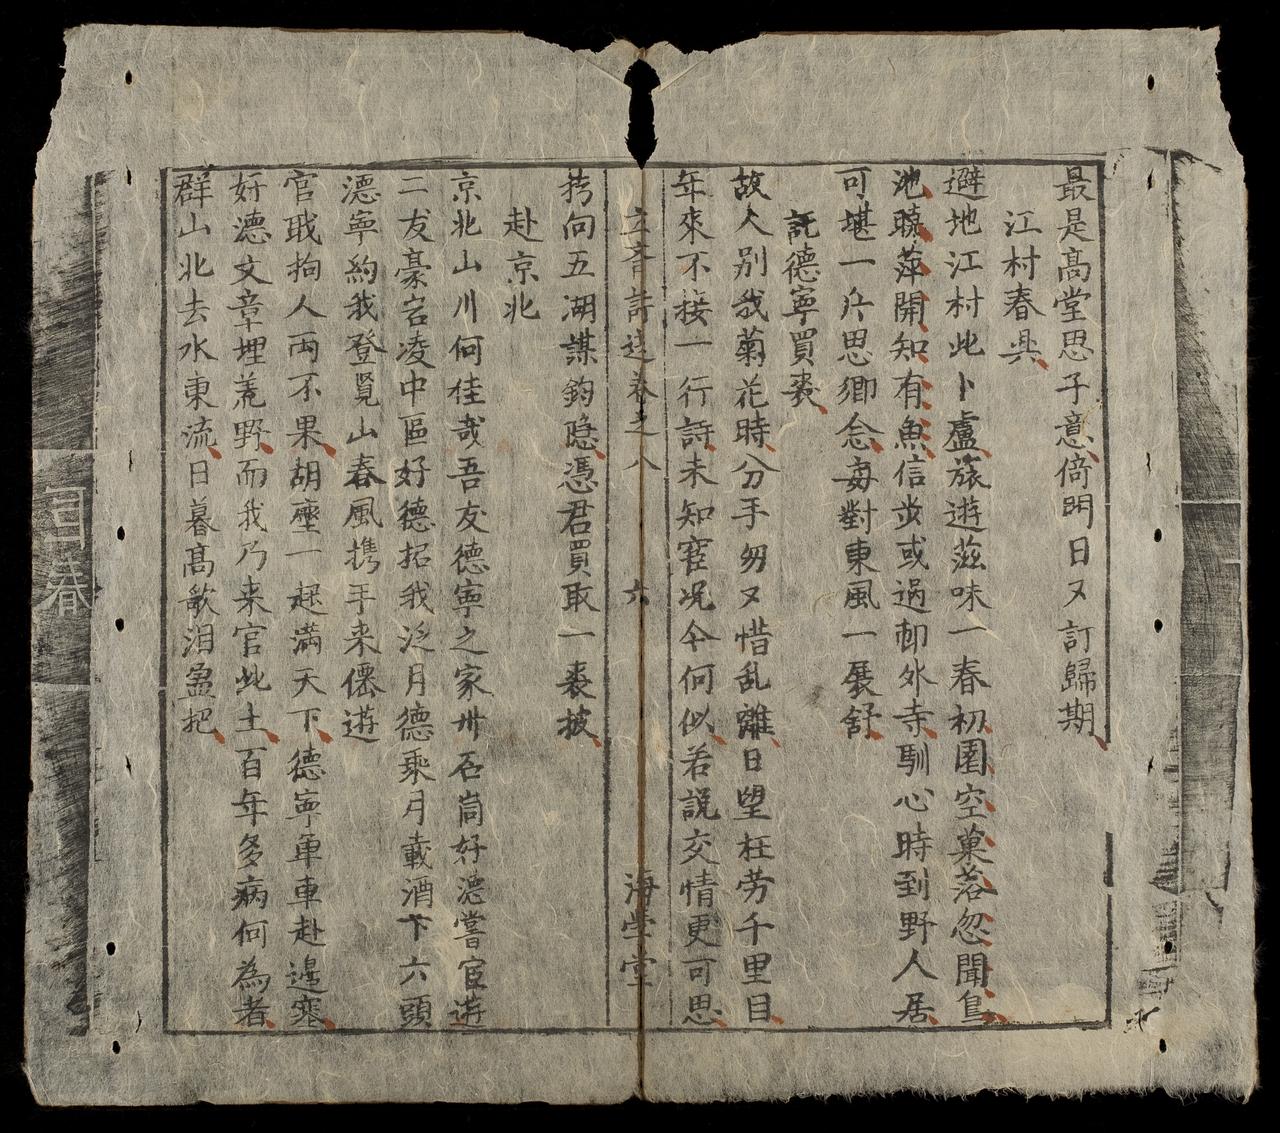 最是高堂思子意倚門日又訂歸期
江村春興
避地江村此卜廬旅遊滋味一春初園空菓落忽聞鳥
池暖萍開知有魚信步或過郊外寺馴心時到野人居
可堪一片思鄉念每對東風一展舒
託德寧買裘
故人別我菊花時分手匆又惜乱離日望枉劳千里目
年來不接一行詩未知宦况今何似若說交情更可思
若向五湖謀釣隐憑君買取一裘披
立斎詩 卷之八
六
海 堂
赴京北
京北山川何佳哉吾友德寧之家卅石尚好德嘗宦遊
二友豪宕凌中區好德招我泛月德乘月載酒下六頭
德寧約我登覽山春風携手来僊遊
官戢拘人両不果胡塵一起滿天下德寧單車赴邊塞
好德文章埋荒野而我乃来官此土百年多病何為者
群山北去水東流日暮高歌泪盈把
日春